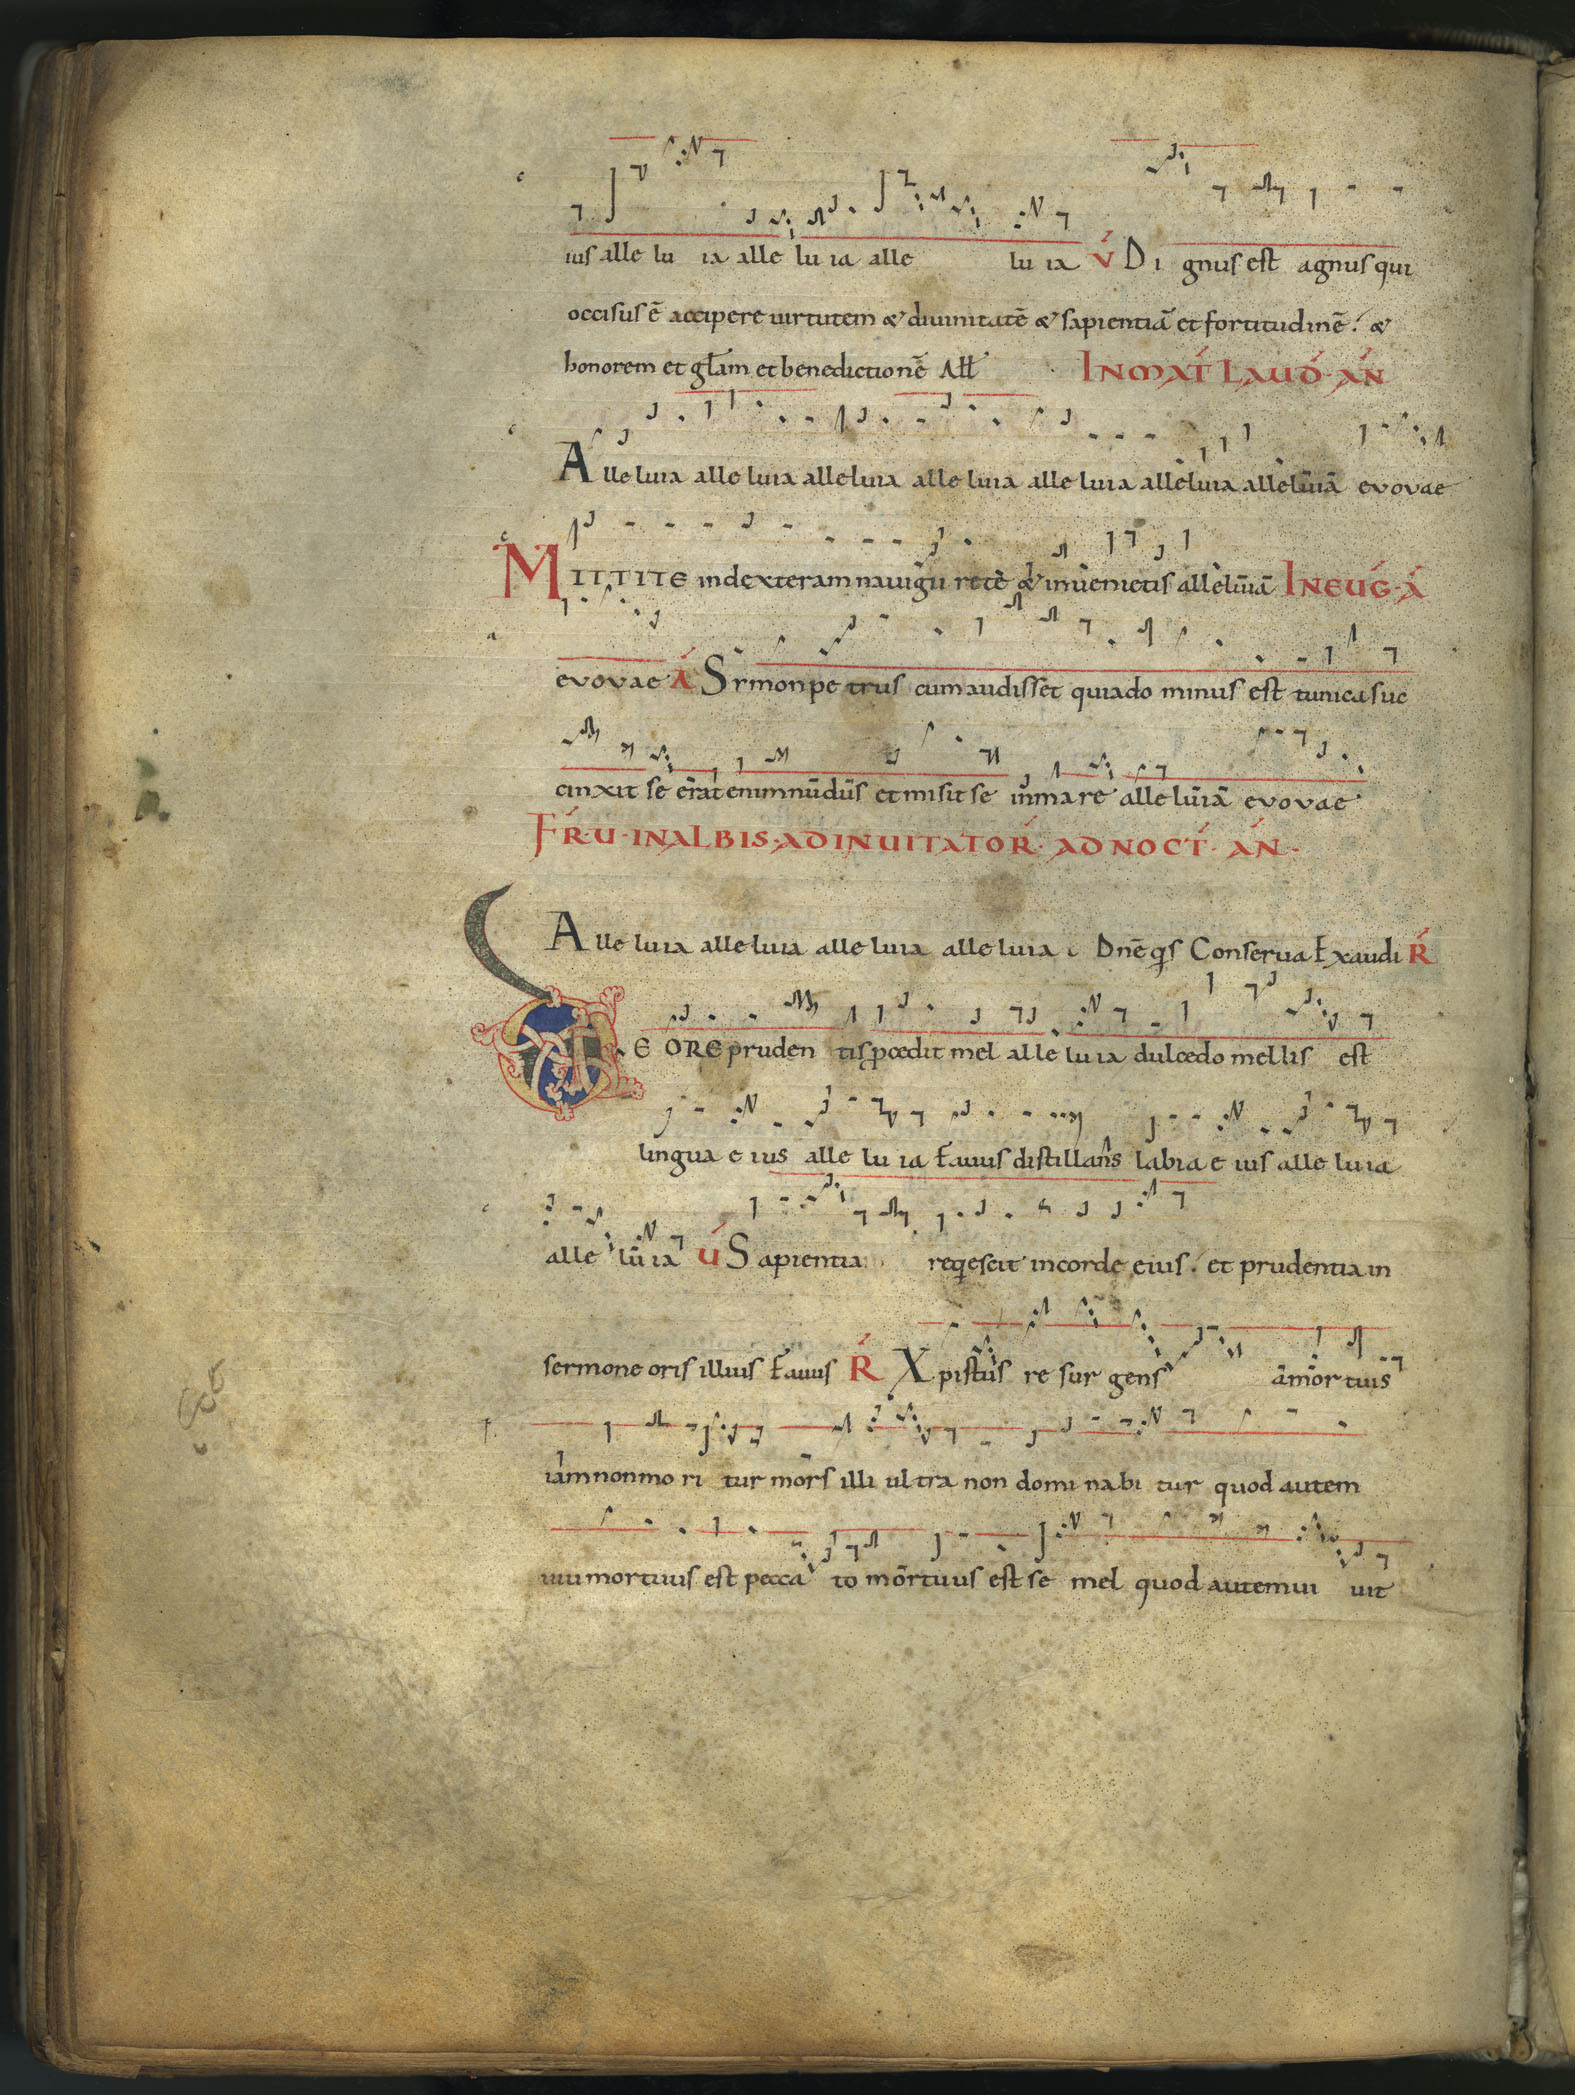 ius alle lu ia alle lu ia alle lu ia V Di gnus est agnus qui
occisus ē accipere uirtutem & diuinitatē & sapientiā et fortitudinē. &
honorem et gl̄am et benedictionē All̄
IN MAT LAUD. AN
Alle luia alle luia alleluia alle luia alle luia alleluia alleluia evovae
MITTITE in dexteram nauigii rete & inuenietis alleluia IN EUG. A
evovae A Symon pe trus cum audisset quia do minus est tunica suc
cinxit se erat enim nudus et misit se in mare alle luia evovae
FR. U. IN ALBIS. AD INUITATOR. AD NOCT. AN.
Alle luia alle luia alle luia alle luia Dnē qs Conserua Exaudi R
DE ORE pruden tis pcedit mel alle lu ia dulcedo mellis est
lingua e ius alle lu ia Fauus distillans labia e ius alle lu ia
alle lu ia V Sapientia reqescit in corde eius. et prudentia in
sermone oris illius Fauus R Xpistus re sur gens a mor tuis
iam non mo ri tur mors illi ul tra non domi nabi tur quod autem
uiu mortuus est pecca to mortuus est se mel quod autem ui uit